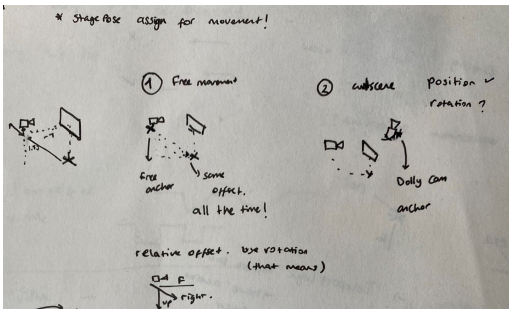 * Stage Pose assign for movement!
① Free movement
② cutscene
position ✓
rotation ?
free
anchor
same
offset.
all the time!
Dolly cam
anchor
relative offset. bye rotation
(that means)
F
right.
up